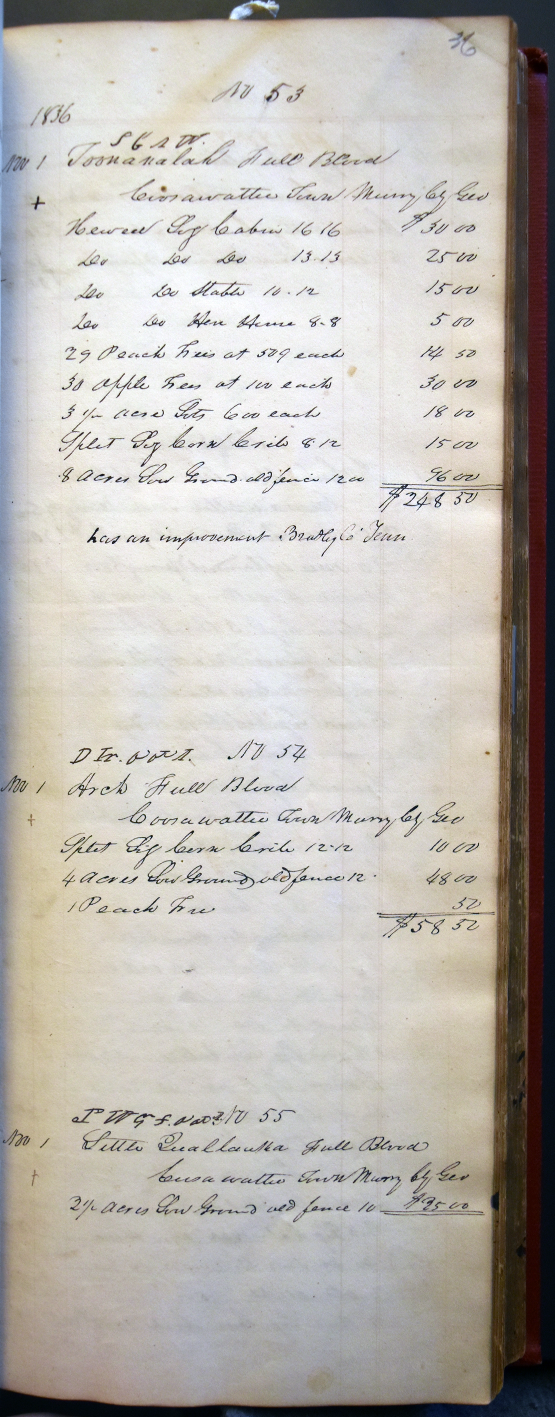 36
No 53
1836
Nov 1 Toonanalah Full Blood
+ Coosawattie Town Murry Cty Geo
Hewed Log Cabin 16 16 $30 00
Do Do Do 13-13 25 00
Do Do Stable 10-12 15 00
Do Do Hen House 8-8 5 00
29 Peach Trees at 50¢ each 14 50
30 Apple Trees at 100 each 30 00
3 acre Lots 600 each 18 00
Split Log Corn Crib 8-12 15 00
8 Acres Low Ground old fence 1200 96 00
$248 50
has an improvement Bradley Co Tenn
No 54
Nov 1 Arch Full Blood
+ Coosawattie Town Murry Cty Geo
Split Log Corn Crib 12-12 10 00
4 Acres Low Ground old fence 12 48 00
1 Peach Tree 50
$58 50
No 55
Nov 1 Little Full Blood
+ Cusawattie Town Murry Cty Geo
2½ Acres Low Ground old fence 10 $25 00